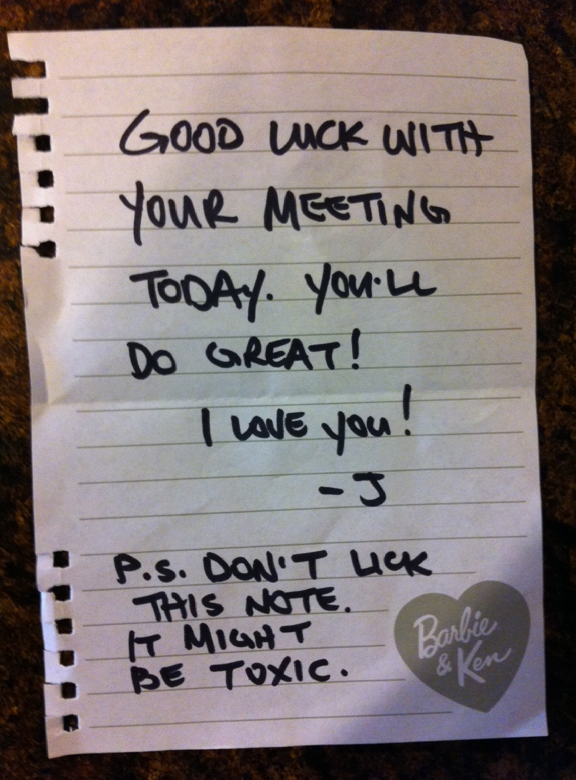 GOOD LUCK WITH
YOUR MEETING
TODAY. YOU'LL
DO GREAT!
I LOVE YOU!
- J
P.S. DON'T LICK
THIS NOTE.
IT MIGHT
BE TOXIC.
Barbie
& Ken